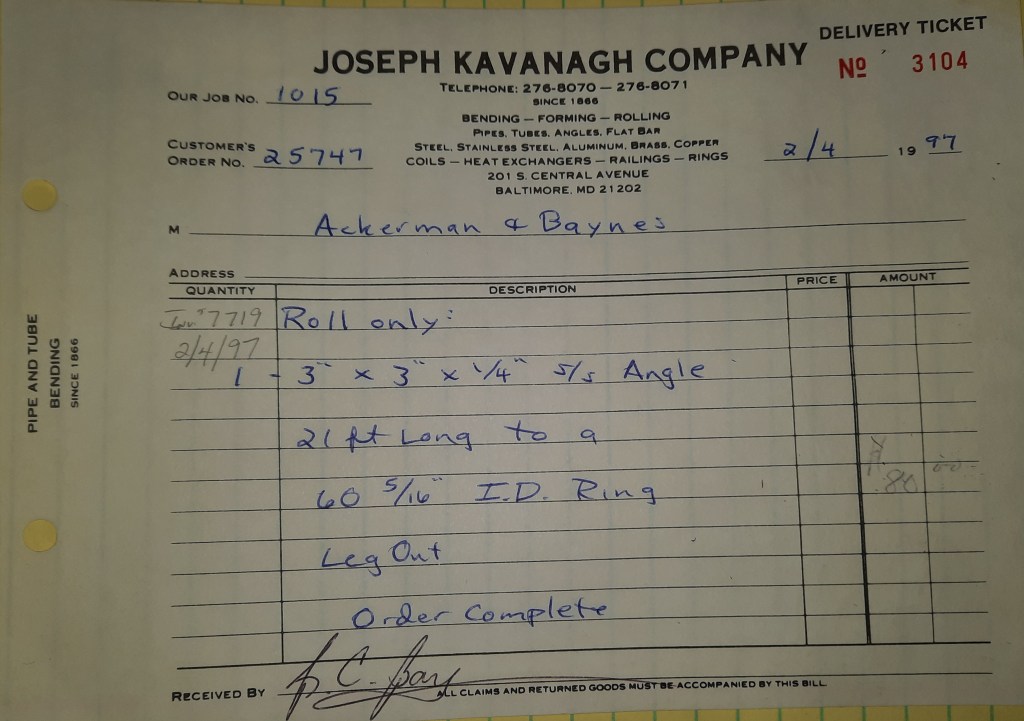 DELIVERY TICKET
JOSEPH KAVANAGH COMPANY
No 3104
TELEPHONE: 276-8070 — 276-8071
SINCE 1866
OUR JOB NO. 1015
BENDING — FORMING — ROLLING
PIPES, TUBES, ANGLES, FLAT BAR
STEEL, STAINLESS STEEL, ALUMINUM, BRASS, COPPER
COILS — HEAT EXCHANGERS — RAILINGS — RINGS
201 S. CENTRAL AVENUE
BALTIMORE, MD 21202
CUSTOMER'S
ORDER NO. 25747
2/4 19 97
M Ackerman & Baynes
ADDRESS
QUANTITY DESCRIPTION PRICE AMOUNT
7719 Roll only:
2/4/97
1 - 3" x 3" x 1/4" s/s Angle
21 ft Long to a
60 5/16" I.D. Ring
80
Leg Out
Order Complete
RECEIVED BY
ALL CLAIMS AND RETURNED GOODS MUST BE ACCOMPANIED BY THIS BILL
PIPE AND TUBE
BENDING
SINCE 1866